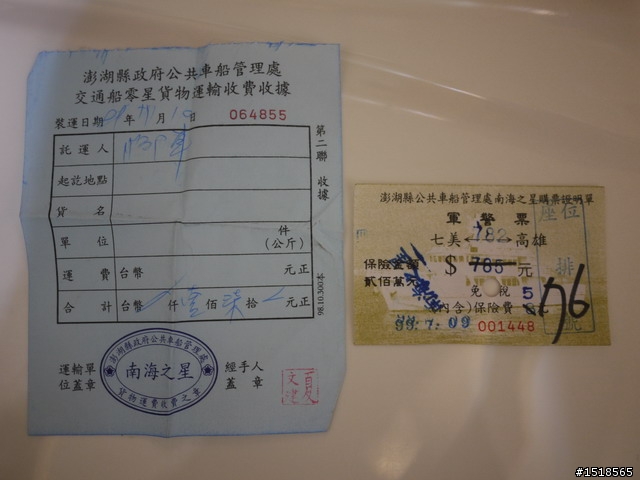 澎湖縣政府公共車船管理處
交通船零星貨物運輸收費收據
裝運日期 年 月 日 064855
託運人
起訖地點
貨名
單位 件(公斤)
運費 台幣 元正
合計 台幣 仟壹佰柒拾 元正
第二聯 收據
98.10.300本
運輸單位蓋章
澎湖縣政府公共車船管理處
南海之星
貨物運費收費之章
經手人蓋章
澎湖縣公共車船管理處南海之星購票證明單
軍警票
七美 782 高雄
保險金額 $ 785 元
貳佰萬元 免稅 5
(內含)保險費 元
99.7.09 001448
座位 排 號
76
#1518565